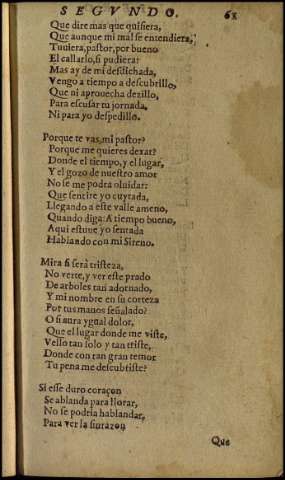 SEGVNDO. 68
Que dire mas que quisiera,
Que aunque mi mal se entendiera,
Tuuiera, pastor, por bueno
El callarlo, si pudiera:
Mas ay de mi desdichada,
Vengo a tiempo a descubrillo,
Que ni aprouecha dezillo,
Para escusar tu jornada,
Ni para yo despedillo.
Porque te vas, mi pastor?
Porque me quieres dexar?
Donde el tiempo, y el lugar,
Y el gozo de nuestro amor
No se me podra oluidar:
Que sentire yo cuytada,
Llegando a este valle ameno,
Quando diga: A tiempo bueno,
Aqui estuue yo sentada
Hablando con mi Sireno.
Mira si serà tristeza,
No verte, y ver este prado
De arboles tan adornado,
Y mi nombre en su corteza
Por tus manos señalado?
O si aura ygual dolor,
Que el lugar donde me viste,
Vello tan solo y tan triste,
Donde con tan gran temor
Tu pena me descubriste?
Si esse duro coraçon
Se ablanda para llorar,
No se podria hablandar,
Para ver la sinrazon
Que